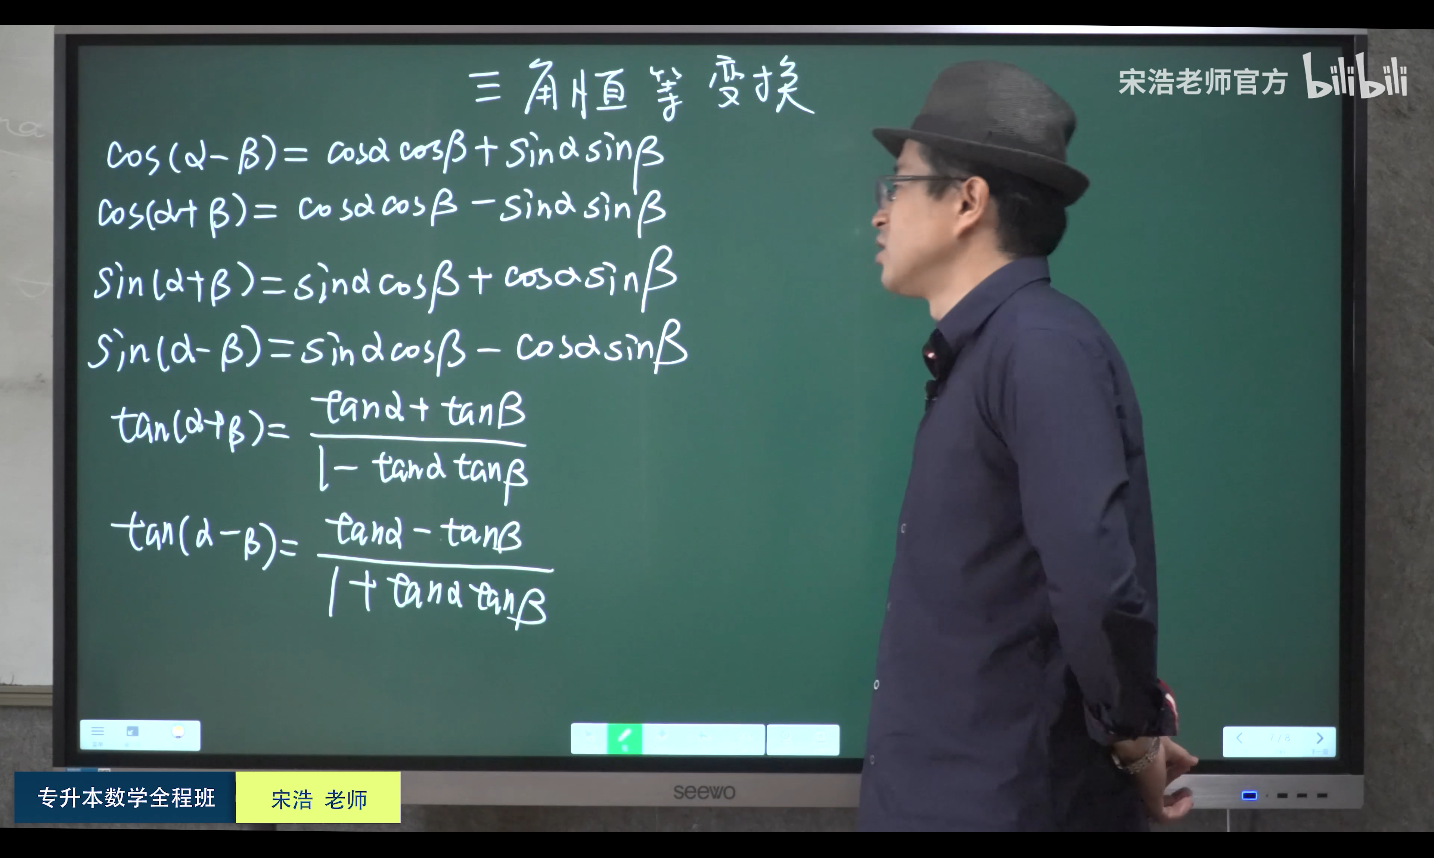 宋浩老师官方 bilibili
三角恒等变换
cos(α-β)= cosαcosβ+sinαsinβ
cos(α+β)= cosαcosβ-sinαsinβ
sin(α+β)=sinαcosβ+cosαsinβ
sin(α-β)=sinαcosβ-cosαsinβ
tan(α+β)= tanα+tanβ
1-tanαtanβ
tan(α-β)= tanα-tanβ
1+tanαtanβ
seewo
专升本数学全程班 宋浩 老师